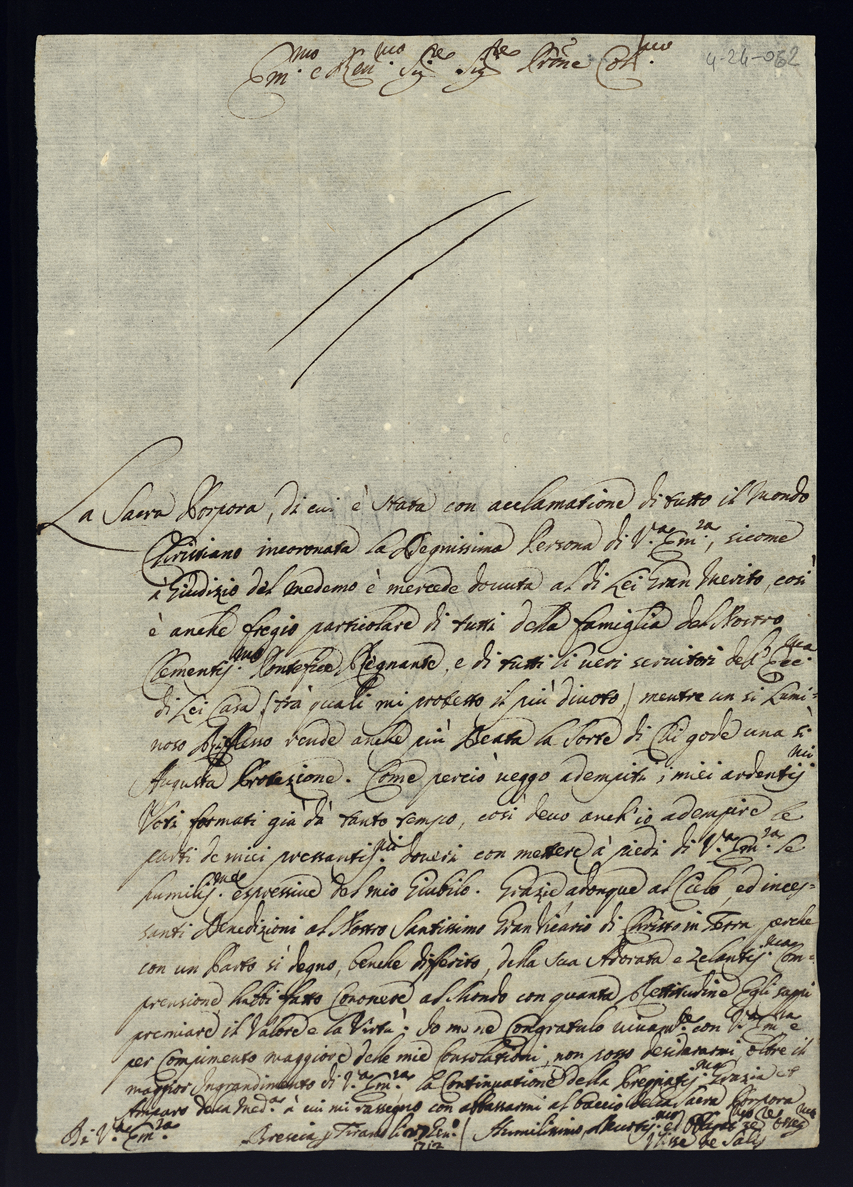 Em.mo e Rev.mo Sig.re Sig.re Prōne Col.mo
4-24-062
La Sacra Porpora, di cui è stata con acclamatione di tutto il Mondo
Christiano incoronata la Degnissima Persona di V.a Em.za, sicome
à Giudizio del medemo è mercede dovuta al di Lei Gran Merito, così
è anche fregio particolare di tutti della famiglia del Nostro
Clementiss.mo Pontefice Regnante, e di tutti li veri servitori dell' Ecc.ma
di Lei Casa (trà quali mi protesto il più divoto) mentre un si Lumi=
noso Riflesso rende anche più Beata la Sorte di Chi gode una si
Augusta Protezione. Come perciò veggo adempiti i miei ardentiss.mi
Voti formati già dà tanto tempo, così devo anch'io adempire le
parti de miei pressantiss.mi doveri con mettere à piedi di V.a Em.za le
humiliss.me espressive del mio Giubilo. Grazie adonque al Cielo, ed inces=
santi Benedizioni al Nostro Santissimo Gran Vicario di Christo in Terra perche
con un Parto sì degno, benche differito, della sua Adorata e Zelantiss.ma Com=
prensione habbi fatto Conoscere al Mondo con quanta Rettitudine Egli sappi
premiare il Valore e la Virtù: Io me ne Congratulo con V.a Em.za e
per Compimento maggiore delle mie Consolationi, non posso desiderarmi oltre il
maggior Ingrandimento di V.a Em.za la Continuatione della Pregiatiss.ma Grazia et
Amore della Med.a à cui mi rassegno con abbassarmi al baccio della Sacra Porpora
Di V.a Em.za
Brescia p Tirano li Gen.o
1712
Humilissimo, Devotiss.mo ed
de Salis